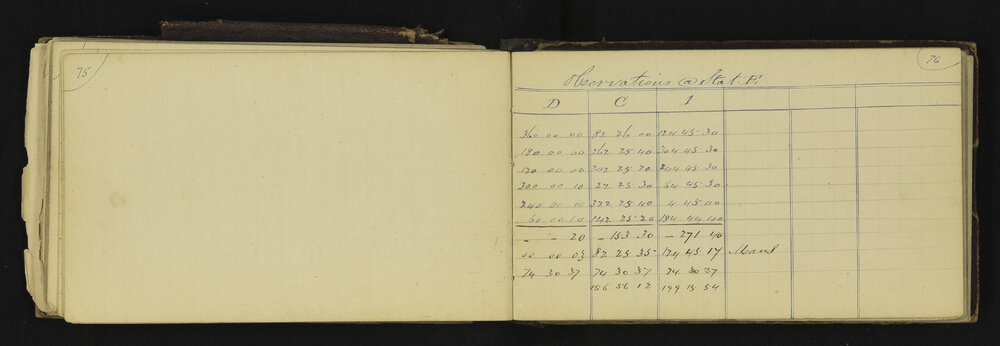 75
76
Observations @ Stat. F.
D C I
360 00 00 82 26 00 124 45 30
180 00 00 262 25 40 304 45 30
120 00 00 202 25 20 244 45 30
300 00 10 22 25 30 64 45 30
240 00 00 322 25 40 4 45 00
60 00 10 142 25 20 184 44 40
- - 20 - 153 30 - 271 40
00 00 03 82 25 35 124 45 17 Mean
74 30 37 74 30 37 74 30 37
156 56 12 199 15 54